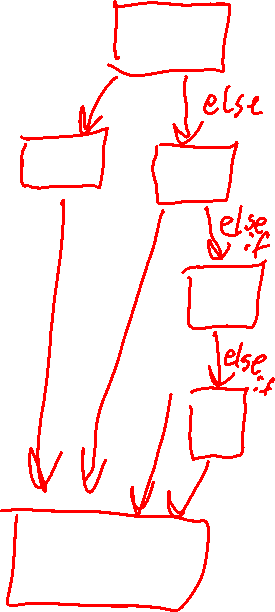 else
else
if
else
if